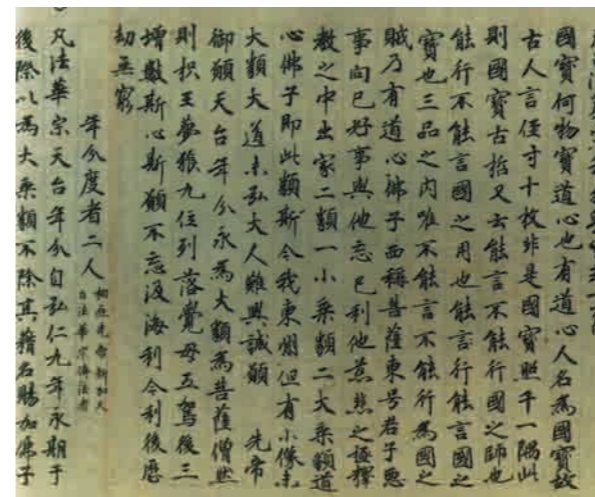 國寶何物寶道心也有道心人名為國寶故
古人言徑寸十枚非是國寶照千一隅此
則國寶古哲又云能言不能行國之師也
能行不能言國之用也能言行能言國之
寶也三品之内唯不能言不能行為國之
賊乃有道心佛子西稱菩薩東号君子悪
事向己好事與他忘己利他慈悲之極釋
教之中出家二類一小乗類二大乗類道
心佛子即此類斯今我東州但有小像未
大類大道未弘大人難興誠願 先帝
御願天台年分永為大類為菩薩僧然
則枳王夢猴九位列落覺母五駕後三
增數斯心斯願不忘汲海利今利後歴
劫無窮
年分度者二人 柏原先帝新加天
台法華宗傳法者
凡法華宗天台年分自弘仁九年永期于
後際以為大乗類不除其籍名賜加佛子